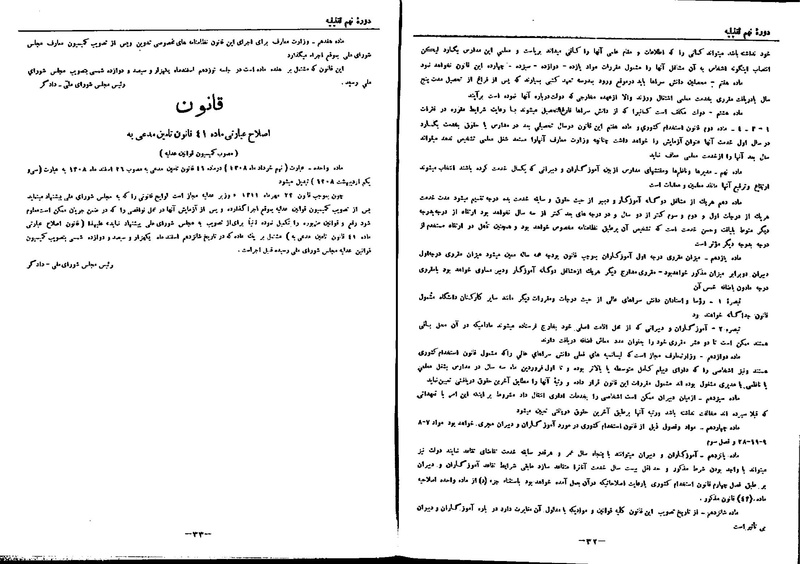 دورهٔ نهم تقنینیه
خود نداشته باشد میتواند کسانی را که اطلاعات و مقام علمی آنها را کافی میداند بریاست و معلمی این مدارس بگمارد لیکن
انتصاب اینگونه اشخاص به آن مشاغل آنها را مشمول مقررات مواد یازده - دوازده - سیزده - چهارده این قانون نخواهد نمود
ماده هفتم - محصلین دانش سراها باید در موقع ورود بمدرسه تعهد کتبی بسپارند که پس از فراغ از تحصیل مدت پنج
سال بادریافت مقرری بخدمت معلمی اشتغال ورزند والا از عهده مخارجی که دولت درباره آنها نموده است برآیند
ماده هشتم - دولت مکلف است کسانی را که از دانش سراها فارغ التحصیل میشوند با رعایت شرایط مقرره در فقرات
۱ - ۳ - ۴ - ماده دوم قانون استخدام کشوری و ماده هفتم این قانون در سال تحصیلی بعد در مدارس با حقوق بخدمت بگمارد
در سال اول خدمت آنها عنوان آزمایش را خواهد داشت چنانچه وزارت معارف آنها را مستعد شغل معلمی تشخیص ندهد میتواند
سال بعد آنها را از خدمت معلمی معاف نماید
ماده نهم - مدیرها و ناظم‌ها و مفتشهای مدارس از بین آموزگاران و دبیرانی که یکسال خدمت کرده باشند انتخاب میشوند
ارتقاع و ترفیع آنها مانند معلمین و معلمات است
ماده دهم هریک از مشاغل دوگانه آموزگار و دبیر از حیث حقوق و سابقه خدمت بده درجه تقسیم میشود مدت خدمت
هریک از درجات اول و دوم و سوم کمتر از دو سال و در درجه های بعد کمتر از سه سال نخواهد بود ارتقاء از درجه بدرجه
دیگر منوط بلیاقت و حسن خدمت است که تشخیص آن برطبق نظامنامه مخصوص خواهد بود و همچنین تأهل در ارتقاء مستخدم از
درجه بدرجه دیگر مؤثر است
ماده یازدهم - میزان مقرری درجه اول آموزگاران بموجب قانون بودجه همه ساله معین میشود میزان مقرری درجه اول
دبیران دو برابر میزان مذکور خواهد بود - مقرری مدارج دیگر هریک از مشاغل دوگانه آموزگار و دبیر مساوی خواهد بود بامقرری
درجه مادون باضافه خمس آن
تبصرهٔ ۱ - رؤسا و استادان دانش سراهای عالی از حیث درجات و مقررات دیگر مانند سایر کارکنان دانشگاه مشمول
قانون جداگانه خواهند بود
تبصره ۲ - آموزگاران و دبیرانی که از محل اقامت اصلی خود بخارج فرستاده میشوند مادامیکه در آن محل باقی
هستند ممکن است تا دو عشر مقرری خود را بعنوان مدد معاش اضافه دریافت دارند
ماده دوازدهم - وزارت معارف مجاز است که لیسانسیه های فعلی دانش سراهای عالی را که مشمول قانون استخدام کشوری
هستند و نیز اشخاصی را که دارای دیپلم کامل متوسطه یا بالاتر بوده و تا اول فروردین ماه سه سال در مدارس بشغل معلمی
یا ناظمی یا مدیری مشغول بوده اند مشمول مقررات این قانون قرار داده و رتبهٔ آنها را مطابق آخرین حقوق دریافتی تعیین نماید
ماده سیزدهم - از میان دبیران ممکن است اشخاصی را بخدمات اداری انتقال داد مشروط بر اینکه این امر با تعهداتی
که قبلا سپرده اند مخالفت نداشته باشد و رتبه آنها برطبق آخرین حقوق دریافتی تعیین میشود
ماده چهاردهم - مواد و فصول ذیل از قانون استخدام کشوری در مورد آموزگاران و دبیران مجری خواهد بود مواد ۷-۸
۹-۱۹-۲۸ و فصل سوم
ماده پانزدهم - آموزگاران و دبیران میتوانند با پنجاه سال عمر و هر قدر سابقه خدمت تقاضای تقاعد نمایند دولت نیز
میتواند با واجد بودن شرط مذکور و حداقل بیست سال خدمت آنان را متقاعد سازد مابقی شرایط تقاعد آموزگاران و دبیران
بر طبق فصل چهارم قانون استخدام کشوری با رعایت اصلاحاتیکه در آن بعمل آمده خواهد بود باستثناء جزء (د) از ماده واحده اصلاحیه
ماده (۴۳) قانون مذکور .
ماده شانزدهم - از تاریخ تصویب این قانون کلیه قوانین و موادیکه با مدلول آن مغایرت دارد در باره آموزگاران و دبیران
بی تأثیر است
-۳۲-
دورهٔ نهم تقنینیه
ماده هفدهم - وزارت معارف برای اجرای این قانون نظامنامه های مخصوصی تدوین و پس از تصویب کمیسیون معارف مجلس
شورای ملی بموقع اجراء میگذارد
این قانون که مشتمل بر هفده ماده است در جلسه نوزدهم اسفندماه یکهزار و سیصد و دوازده شمسی بتصویب مجلس شورای
ملی رسید .
رئیس مجلس شورای ملی - دادگر
قانون
اصلاح عبارتی ماده ۴۱ قانون تأمین مدعی به
( مصوب کمیسیون قوانین عدلیه )
ماده واحده - عبارت ( نهم خرداد ماه ۱۳۰۸ ) در ماده ۴۱ قانون تأمین مدعی به مصوب ۲۶ اسفند ماه ۱۳۰۸ به عبارت (سی و
یکم اردیبهشت ۱۳۰۸ ) تبدیل میشود
چون بموجب قانون ۲۲ مهرماه ۱۳۱۱ « وزیر عدلیه مجاز است لوایح قانونی را که به مجلس شورای ملی پیشنهاد مینماید
پس از تصویب کمیسیون قوانین عدلیه بموقع اجرا گذارده و پس از آزمایش آنها در عمل نواقصی را که در ضمن جریان ممکن است معلوم
شود رفع و قوانین مزبوره را تکمیل نموده ثانیاً برای تصویب به مجلس شورای ملی پیشنهاد نماید» علیهذا ( قانون اصلاح عبارتی
ماده ۴۱ قانون تأمین مدعی به ) مشتمل بر یک ماده که در تاریخ شانزدهم اسفند ماه یکهزار و سیصد و دوازده شمسی بتصویب کمیسیون
قوانین عدلیه مجلس شورای ملی رسیده قابل اجرا است .
رئیس مجلس شورای ملی - دادگر
-۳۳-